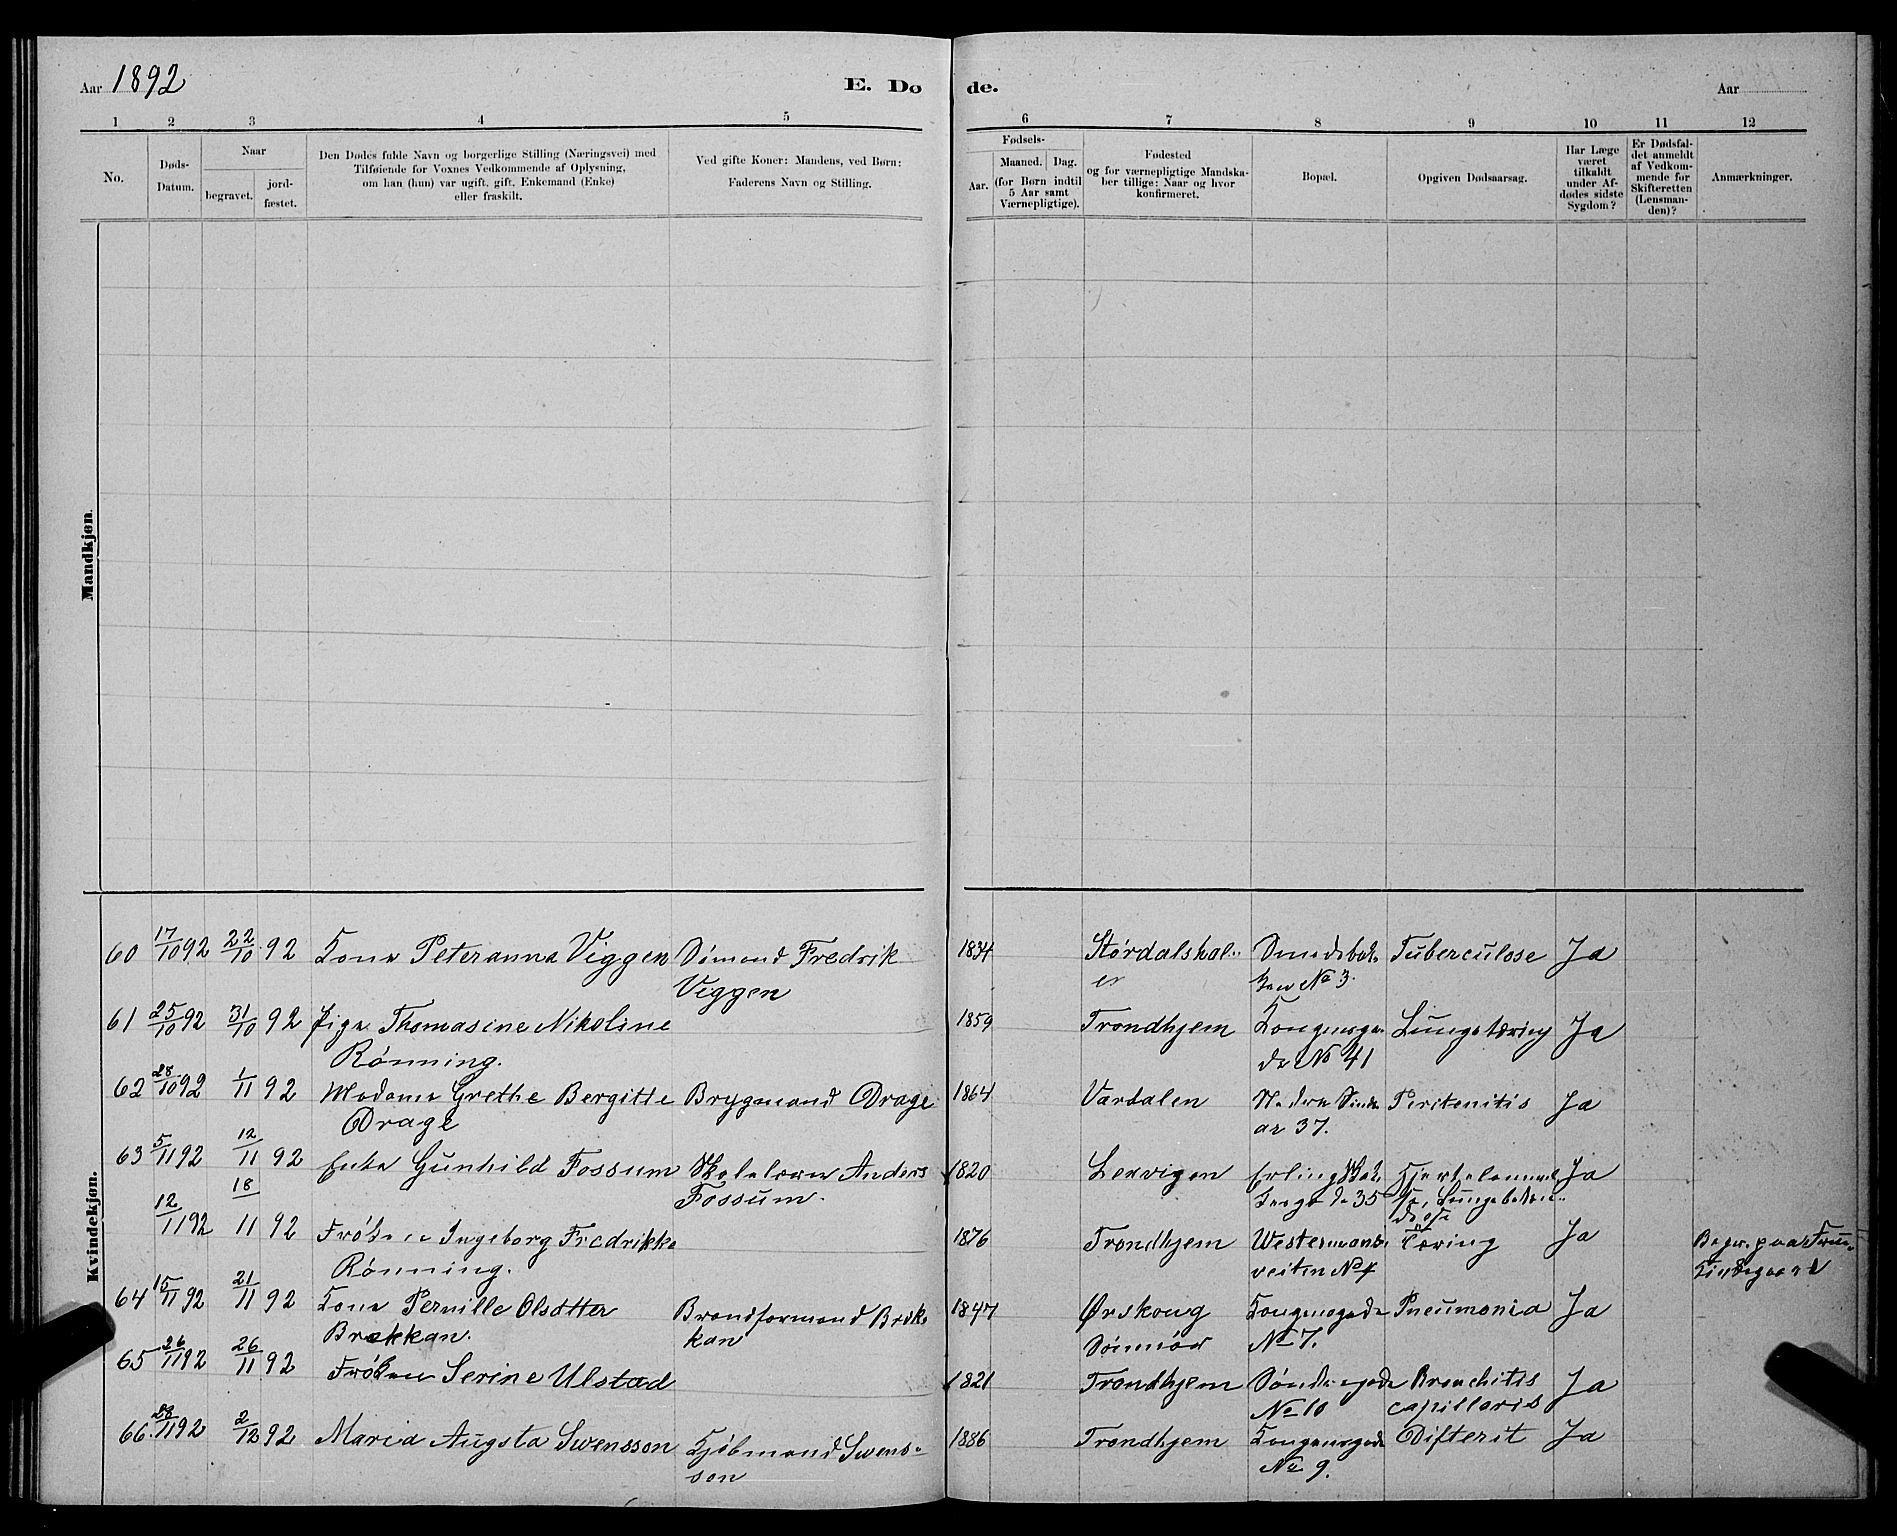 Aar 1892
E. Dø
de.
Aar
1 2 3 4 5 6 7 8 9 10 11 12
No.
Døds-
Datum.
Naar
begravet.
jord-
fæstet.
Den Dødes fulde Navn og borgerlige Stilling (Næringsvei) med
Tilføiende for Voxnes Vedkommende af Oplysning,
om han (hun) var ugift, gift, Enkemand (Enke)
eller fraskilt.
Ved gifte Koner: Mandens, ved Børn:
Faderens Navn og Stilling.
Fødsels-
Aar.
Maaned. Dag.
(for Børn indtil
5 Aar samt
Værnepligtige).
Fødested
og for værnepligtige Mandska-
ber tillige: Naar og hvor
konfirmeret.
Bopæl.
Opgiven Dødsaarsag.
Har Læge
været
tilkaldt
under Af-
dødes sidste
Sygdom?
Er Dødsfal-
det anmeldt
af Vedkom-
mende for
Skifteretten
(Lensman-
den)?
Anmærkninger.
Mandkjøn.
Kvindekjøn.
60 17/10 92 22/10 92 Kone Peteranna Viggen Sømand Fredrik 1834 Størdalshal- Tuberculose Ja
Viggen er No 3.
61 25/10 92 31/10 92 Pige Thomasine Nikoline 1859 Trondhjem Kongensga- Lungetæring Ja
Rønning. de No 41
62 28/10 92 1/11 92 Madame Grethe Bergitte Brygmand Drage 1864 Værdalen Peritenitis Ja
Drage 37.
63 5/11 92 12/11 92 Enke Gunhild Fossum Skolelærer Anders 1820 Lexvigen Erling Ja
Fossum. 35
12/11 92 18/11 92 Frøken Ingeborg Fredrikke 1876 Trondhjem Westermans- Tæring Ja Begr. paa
Rønning. veiten No Kirkegaard
64 15/11 92 21/11 92 Kone Pernille Olsdtter Brandformand Bræk- 1847 Ørskoug Kongensgade Pneumonia Ja
Brækkan. kan Søndmør No 7.
65 26/11 92 26/11 92 Frøken Serine Ulstad 1821 Trondhjem Søndregade Bronchitis Ja
No 10 capillaris
66. 28/11 92 2/12 92 Maria Augsta Swensson Kjøbmand Swens- 1886 Trondhjem Kongensgade Difterit Ja
son No 9.